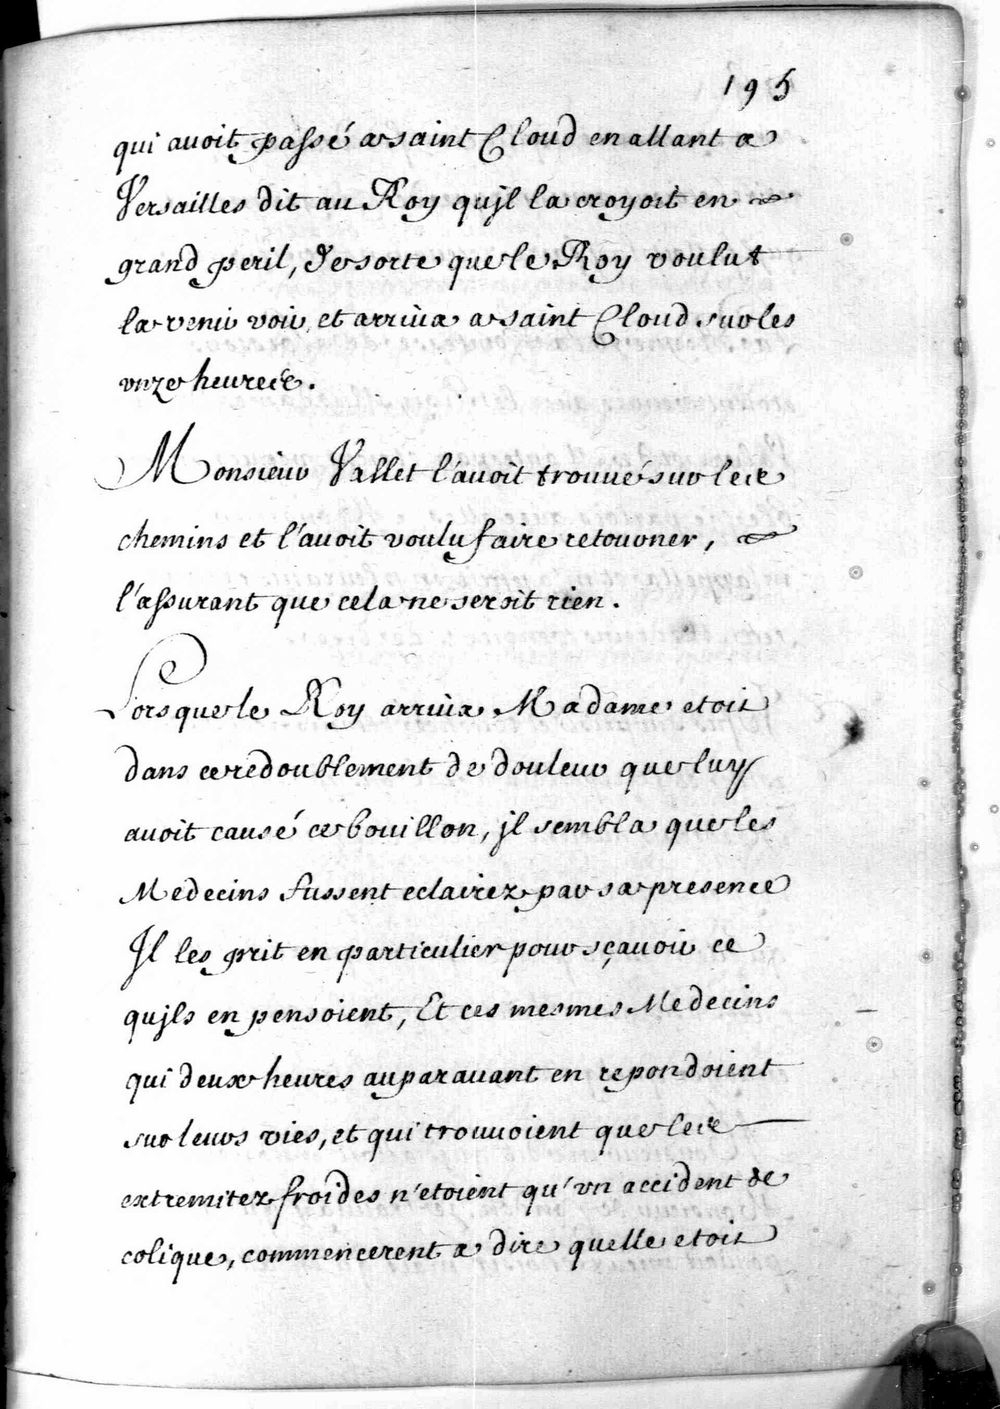 195
qui avoit passé a saint Cloud en allant a
Versailles dit au Roy qujl la croyoit en
grand peril, desorte que le Roy voulut
la venir voir, et arriua a saint Cloud sur les
vnze heures.
Monsieur Vallet l'auoit trouué sur les
chemins et l'auoit voulu faire retourner,
l'assurant que cela ne seroit rien.
Lorsque le Roy arriua Madame etoit
dans ce redoublement de douleur que luy
auoit causé ce bouillon, jl sembla que les
Medecins fussent eclairez par sa presence
Jl les prit en particulier pour sçauoir ce
qujls en pensoient, Et ces mesmes Medecins
qui deux heures auparauant en repondoient
sur leurs vies, et qui trouuoient que les
extremitez froides n'etoient qu'vn accident de
colique, commencerent a dire quelle etoit